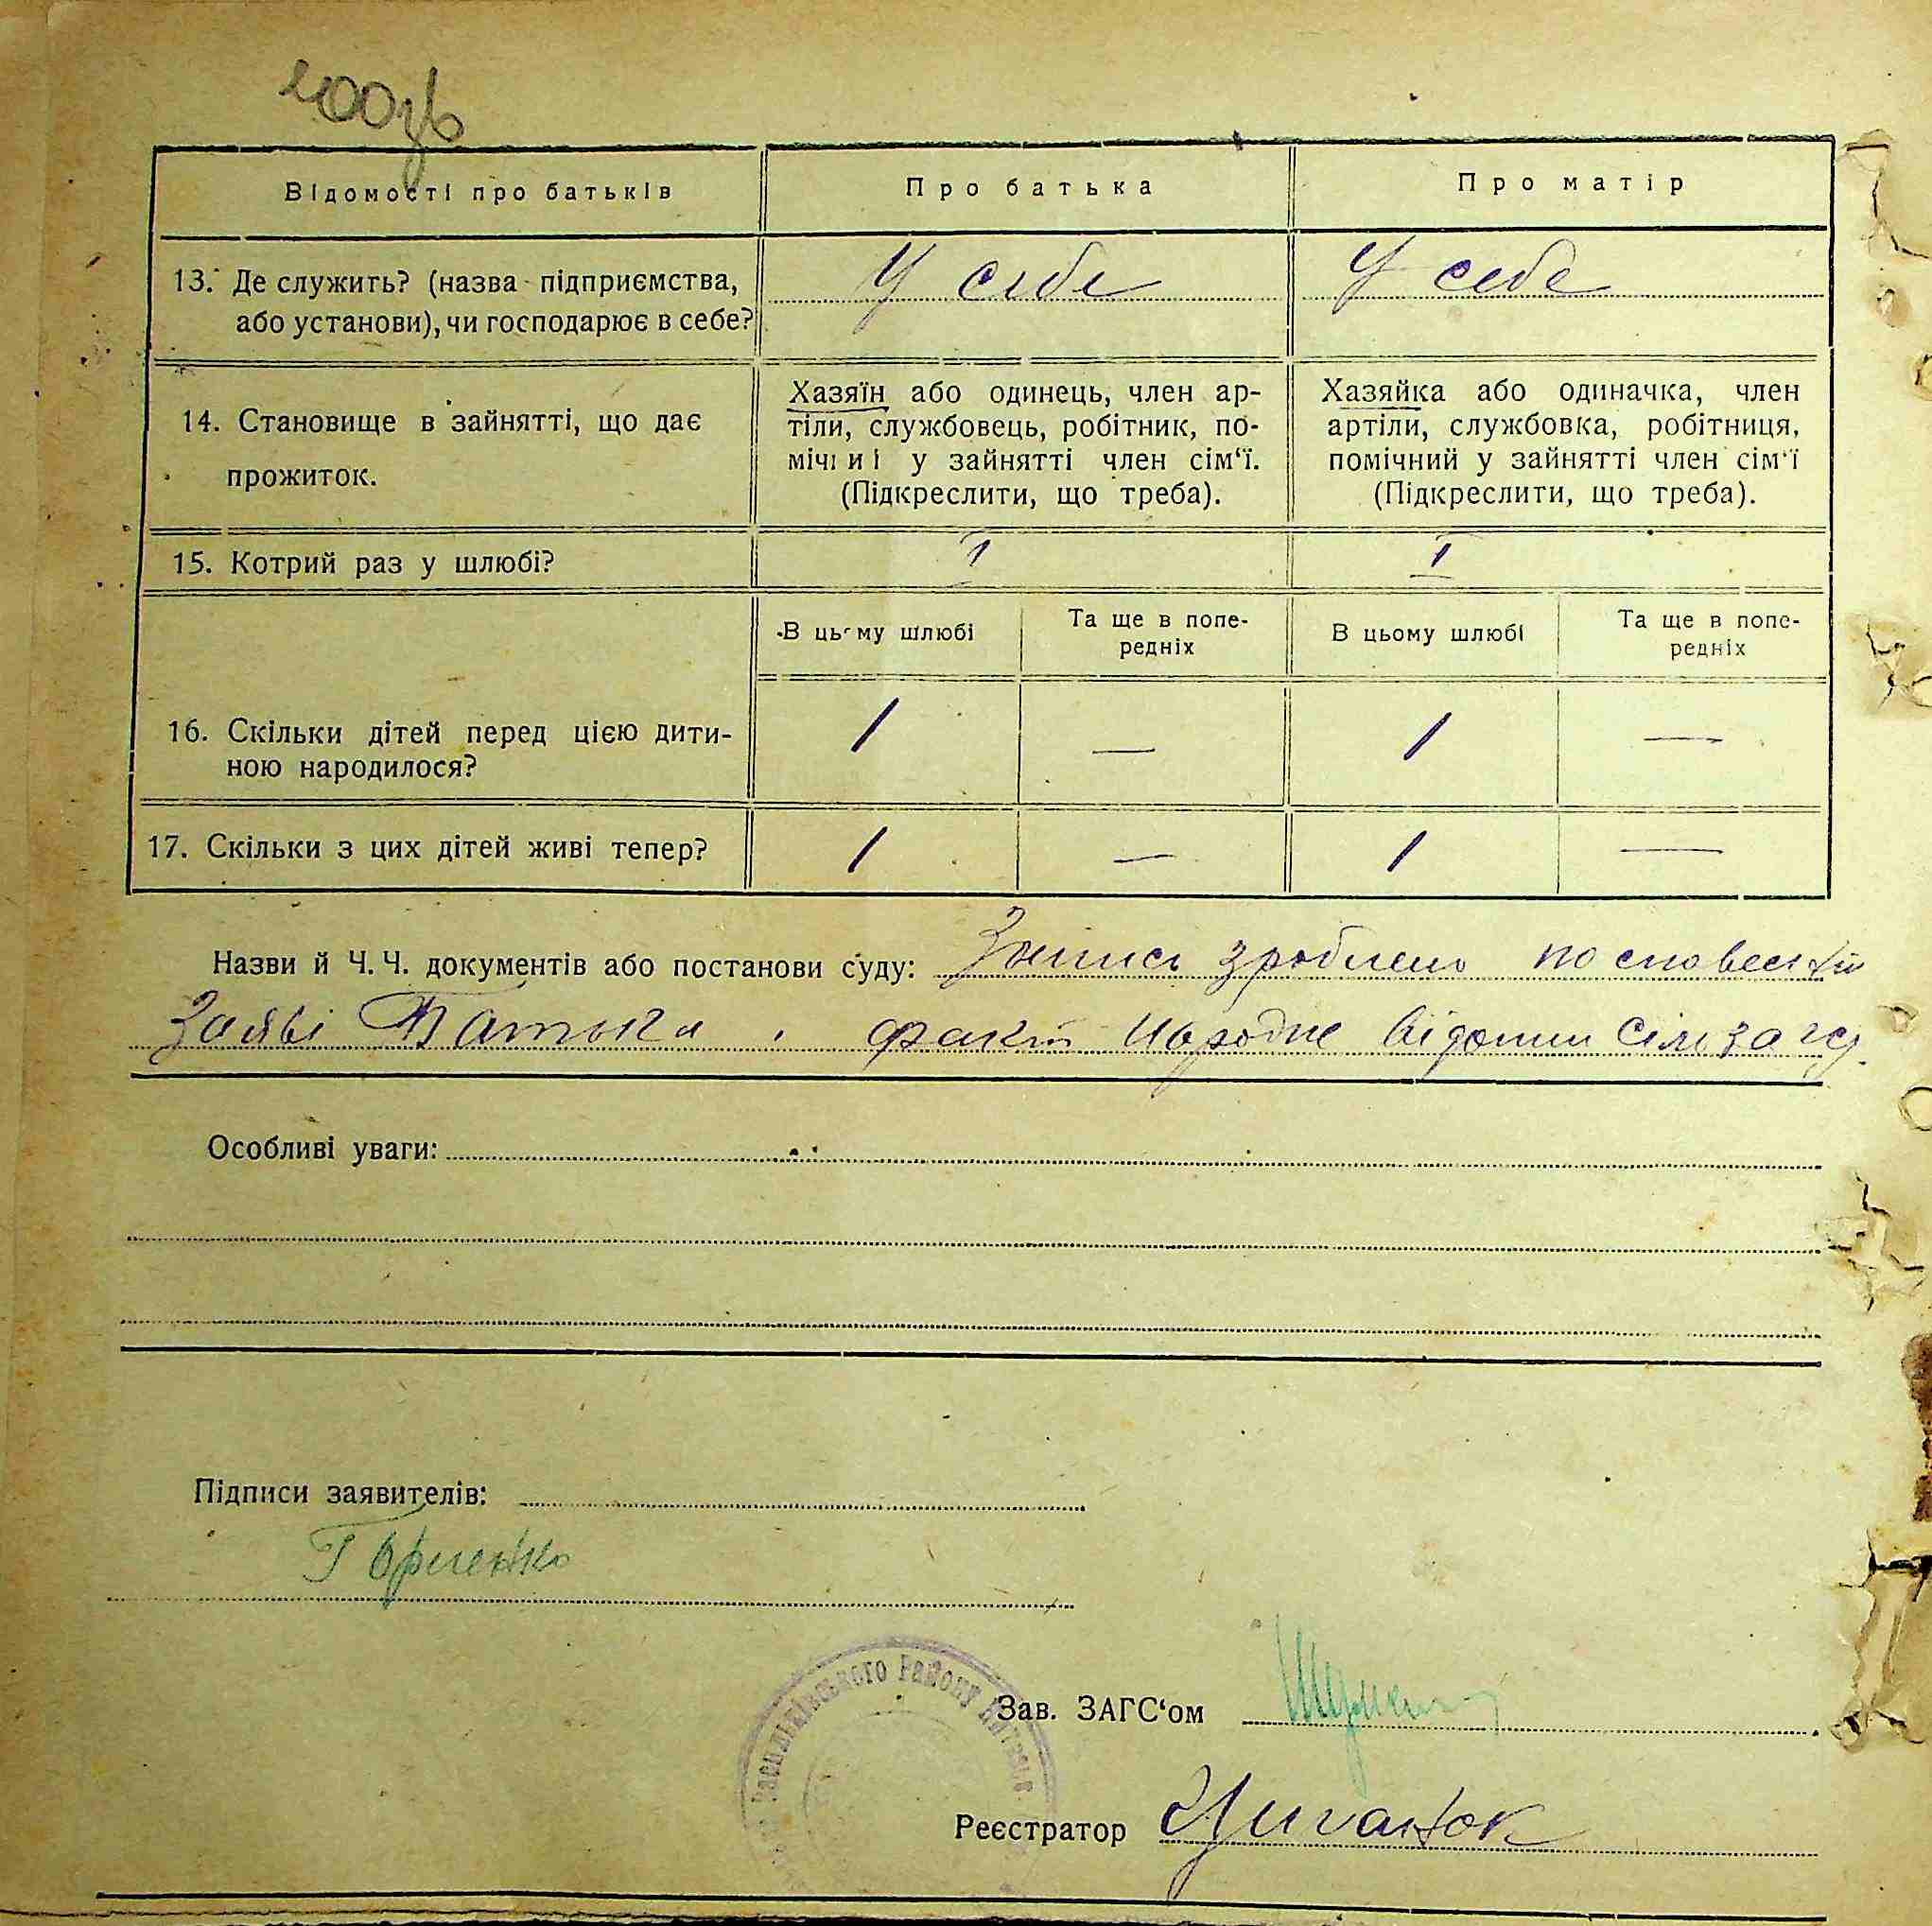 400зв
Відомості про батьків
Про батька
Про матір
13. Де служить? (назва підприємства,
або установи), чи господарює в себе?
У себе
У себе
14. Становище в зайнятті, що дає
прожиток.
Хазяїн або одинець, член ар-
тіли, службовець, робітник, по-
мічний у зайнятті член сім‘ї.
(Підкреслити, що треба).
Хазяйка або одиначка, член
артіли, службовка, робітниця,
помічний у зайнятті член сім‘ї
(Підкреслити, що треба).
15. Котрий раз у шлюбі?
I
I
В цьому шлюбі
Та ще в попе-
редніх
В цьому шлюбі
Та ще в попе-
редніх
16. Скільки дітей перед цією дити-
ною народилося?
1
—
1
—
17. Скільки з цих дітей живі тепер?
1
—
1
—
Назви й Ч. Ч. документів або постанови суду: Запись зроблено по словесній
Заяві Батька, факт народже відомий Сільзагсу.
Особливі уваги:
Підписи заявителів:
Василівського Району
Зав. ЗАГС‘ом
Реєстратор Циганок